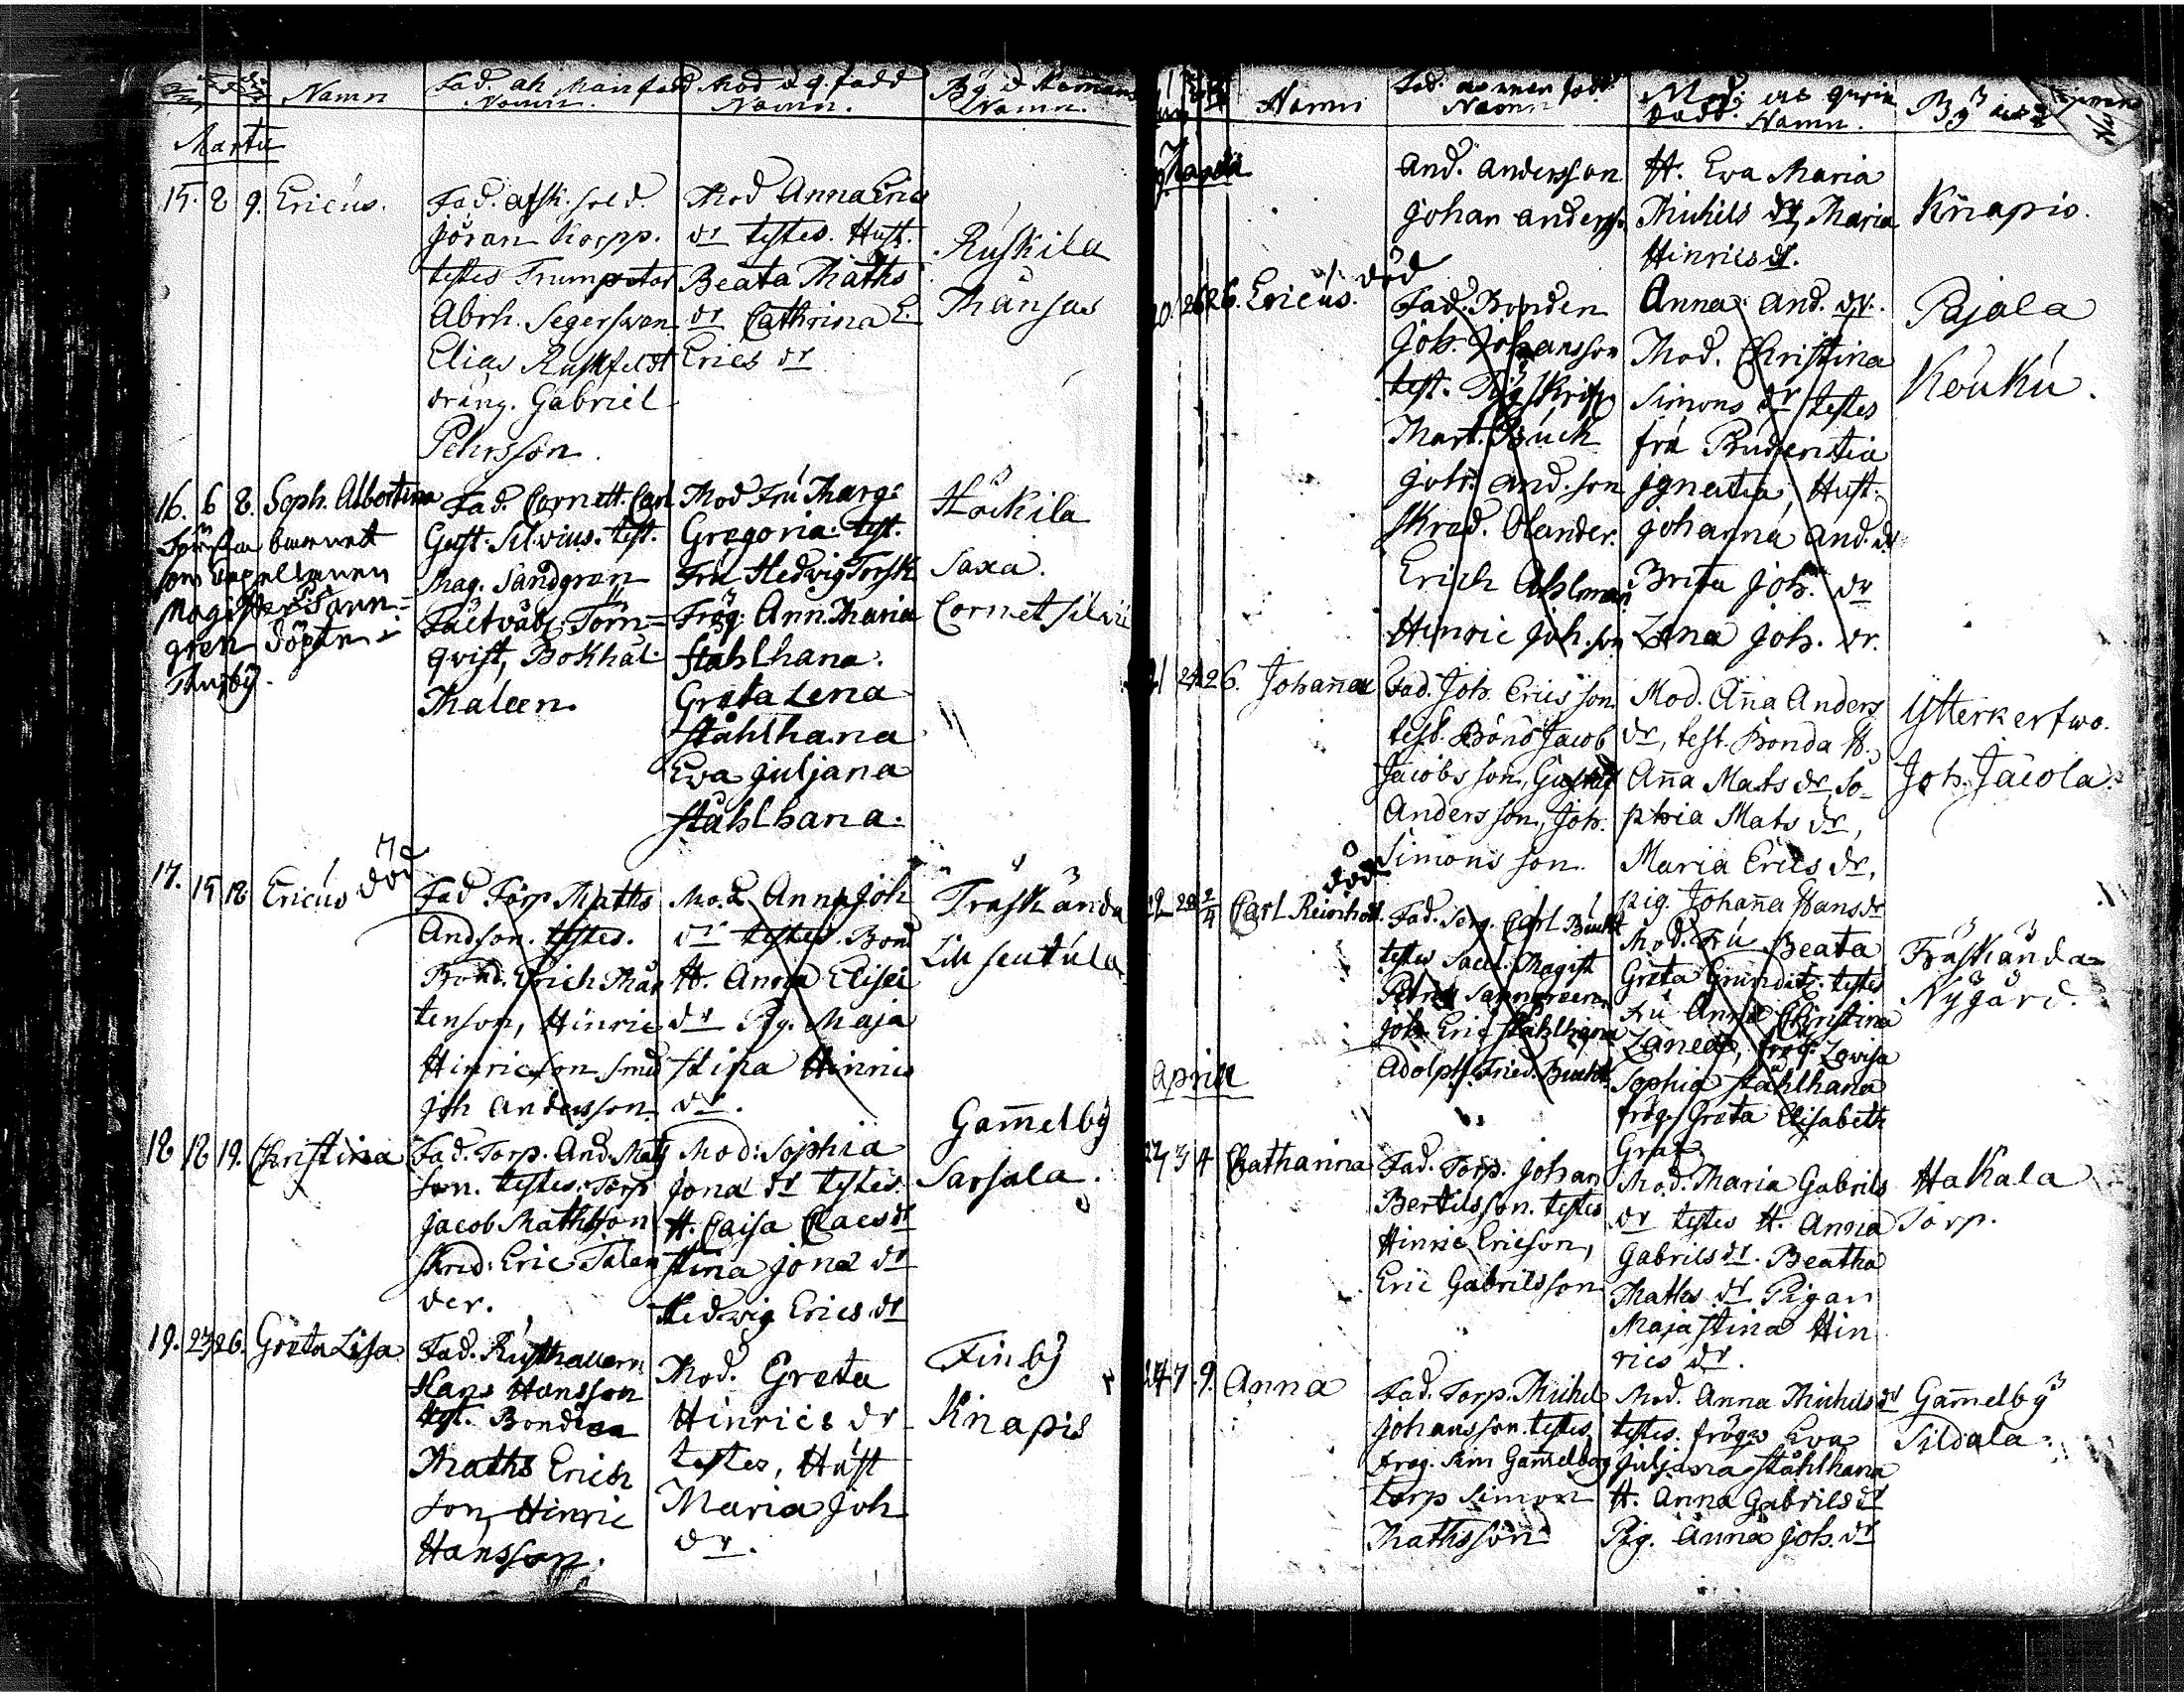 Namn
Namn.
Namn.
Namn.
Martii
15. 8 9. Ericus.
Fad. afsk. sold.
Jöran Korpp.
testes Trumpetar
Abrh. Segersven
Elias Ruskfeldt
dräng. Gabriel
Pehrsson.
Mod Anna Erics
dr testes. Hust.
Beata Maths
dr Cathrina E.
Erics dr
Ruskila
Mansas
16. 6 8. Soph. Albertina
barnet
som Capellanen
Magister Sann=
gren döpte i
Fad. Cornett. Carl
Gust. Silvius. test.
Mag. Sandgren
Fältväb. Törn=
qvist, Bokhål.
Thaleen.
Mod Fru Marg:
Gregoria test.
Fru Hedvig Torsk
Frög. Ann. Maria
Ståhlhana.
Greta Lena
Ståhlhana
Eva Juljana
Ståhlhana.
Höckila
Saxa.
Cornet Silvii
17. 15 18 Ericus död
Fad Torp Maths
Andson. testes.
Bond. Erich Mår
tenson, Hinric
Hinricson Smed
Joh Andersson
Mod Anna Joh
dr testes. Bond
H. Anna Elisei
dr Pig. Maja
Stina Hinrics
dr.
Träskända
Lill seutula
18 18 19. Christina
Fad. Torp. And. Mats
son. testes. Torp
Jacob Mathsson
Skrad: Eric Talan
der.
Mod: Sophia
Jona dr testes.
H. Caisa Claes dr
Stina Jona dr
Hedwig Erics dr
Gam̄elby
Sarsala.
19. 25 26. Greta Lisa
Fad. Rusthallarn
Hans Hansson
test. Bonden
Maths Erich
son, Hinric
Hansson.
Mod. Greta
Hinrics dr
testes, Hust
Maria Joh
dr.
Finby
Knapis
Namn
Namn
Namn.
Martii
And. Andersson
Johan Anders.
H. Eva Maria
Michels dr, Maria
Hinrics dr.
Knapis.
20. 26 26. Ericus. död
Fad. Bonden
Joh. Johansson
test.
Mart. Buck
Joh. And. son
Skrad. Olander.
Erich Ahlman
Hinric Joh. son
Anna And. dr.
Mod. Christina
Simons dr testes
fru Prudentia
Ignatia, Hust.
Johanna And. dr
Brita Joh. dr
Lena Joh. dr.
Pajala
Kouku.
21 24 26. Johan̄a
Fad. Joh. Ericsson
test. Bond Jacob
Jacobsson, Gustaf
Andersson, Joh.
Simons son.
Mod. An̄a Anders
dr, test. Bonda H.
An̄a Mats dr, So-
phia Mats dr,
Maria Erics dr,
pig. Johan̄a Hans dr
Ytterkerfwo.
Joh. Jacola.
22 28 2/4 Carl Reinhold. död
Fad. Serg. Carl Bucht
testes Sacel. Magist
Petrus Sanngreen
Joh. Eric Ståhlhana
Adolph Fried. Bucht
Mod. Fru Beata
Greta Grundel. testes
Fru Anna Christina
frög. Lovisa
Sophia Ståhlhana
frög. Greta Elisabeth
Graf
Träskända
Nygård.
Aprill
23 3 4 Chatharina
Fad. Torp. Johan
Bertilsson. testes
Hinric Ericson,
Eric Gabrilsson
Mod. Maria Gabrils
dr testes H. Anna
Gabrils dr. Beatha
Maths dr. Pigan
Majastina Hin
rics dr.
Hakala
Torp.
24 7 9. Anna
Fad. Torp. Michel
Johansson testes
Sim Gam̄elborg
torp Simon
Mathsson
Mod. Anna Michels dr
testes. frögn Eva
Juljana Ståhlhana
H. Anna Gabrils dr
Pig. Anna Joh. dr
Gam̄elby
Sildala.